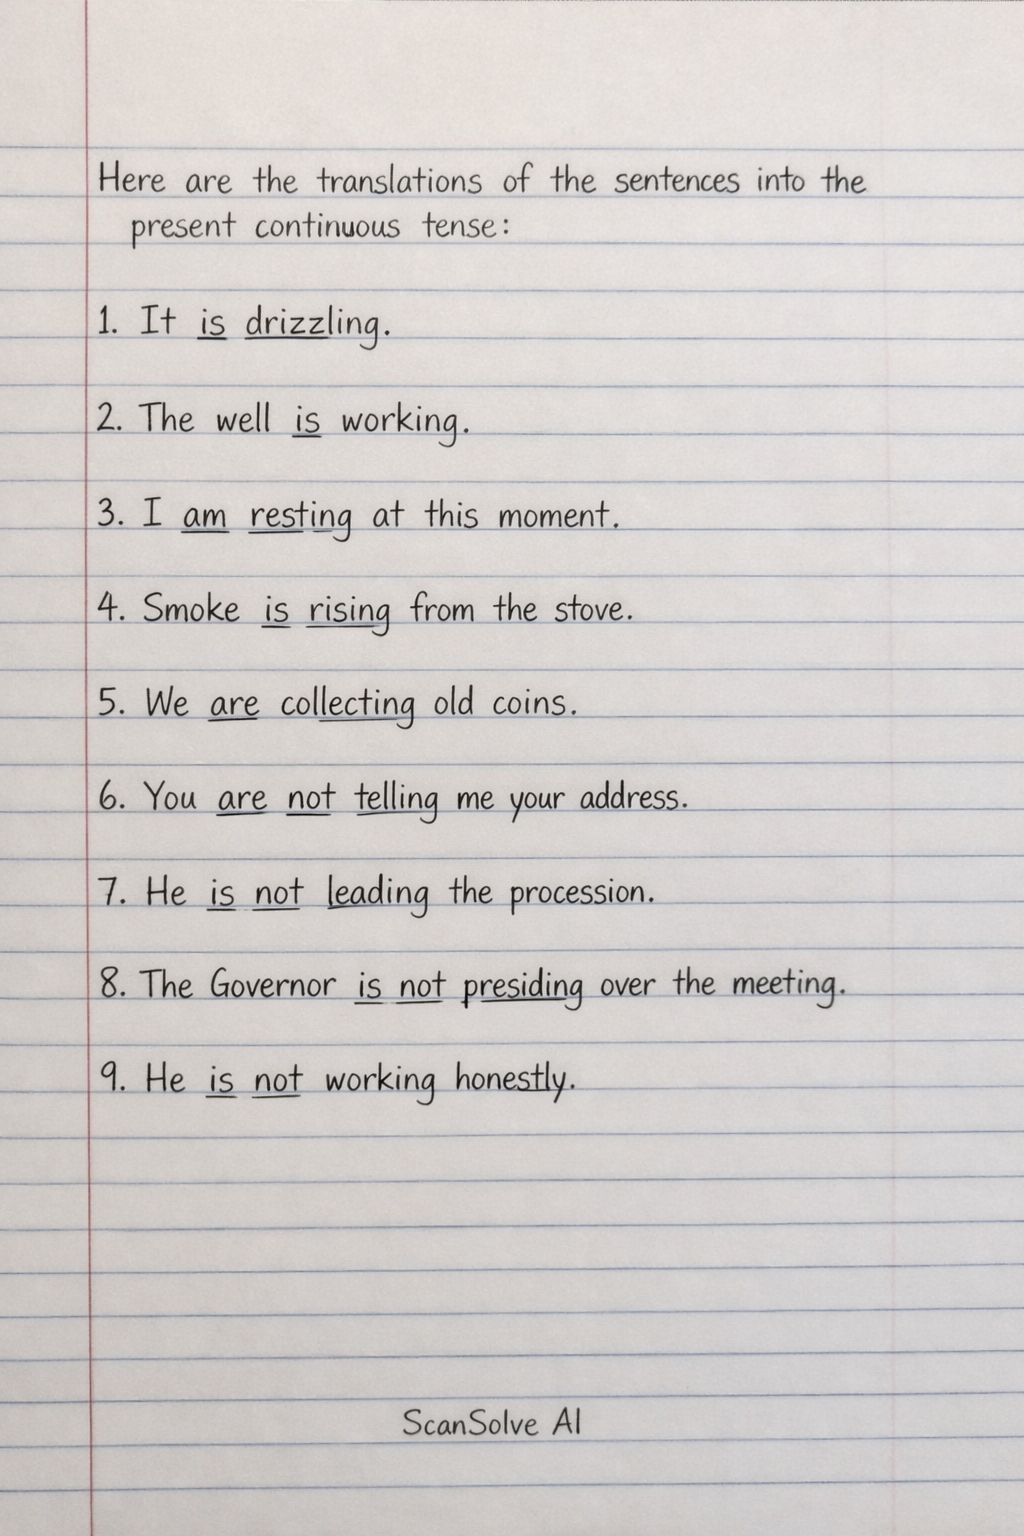 Here are the translations of the sentences into the
present continuous tense:
1. It is drizzling.
2. The well is working.
3. I am resting at this moment.
4. Smoke is rising from the stove.
5. We are collecting old coins.
6. You are not telling me your address.
7. He is not leading the procession.
8. The Governor is not presiding over the meeting.
9. He is not working honestly.
ScanSolve AI